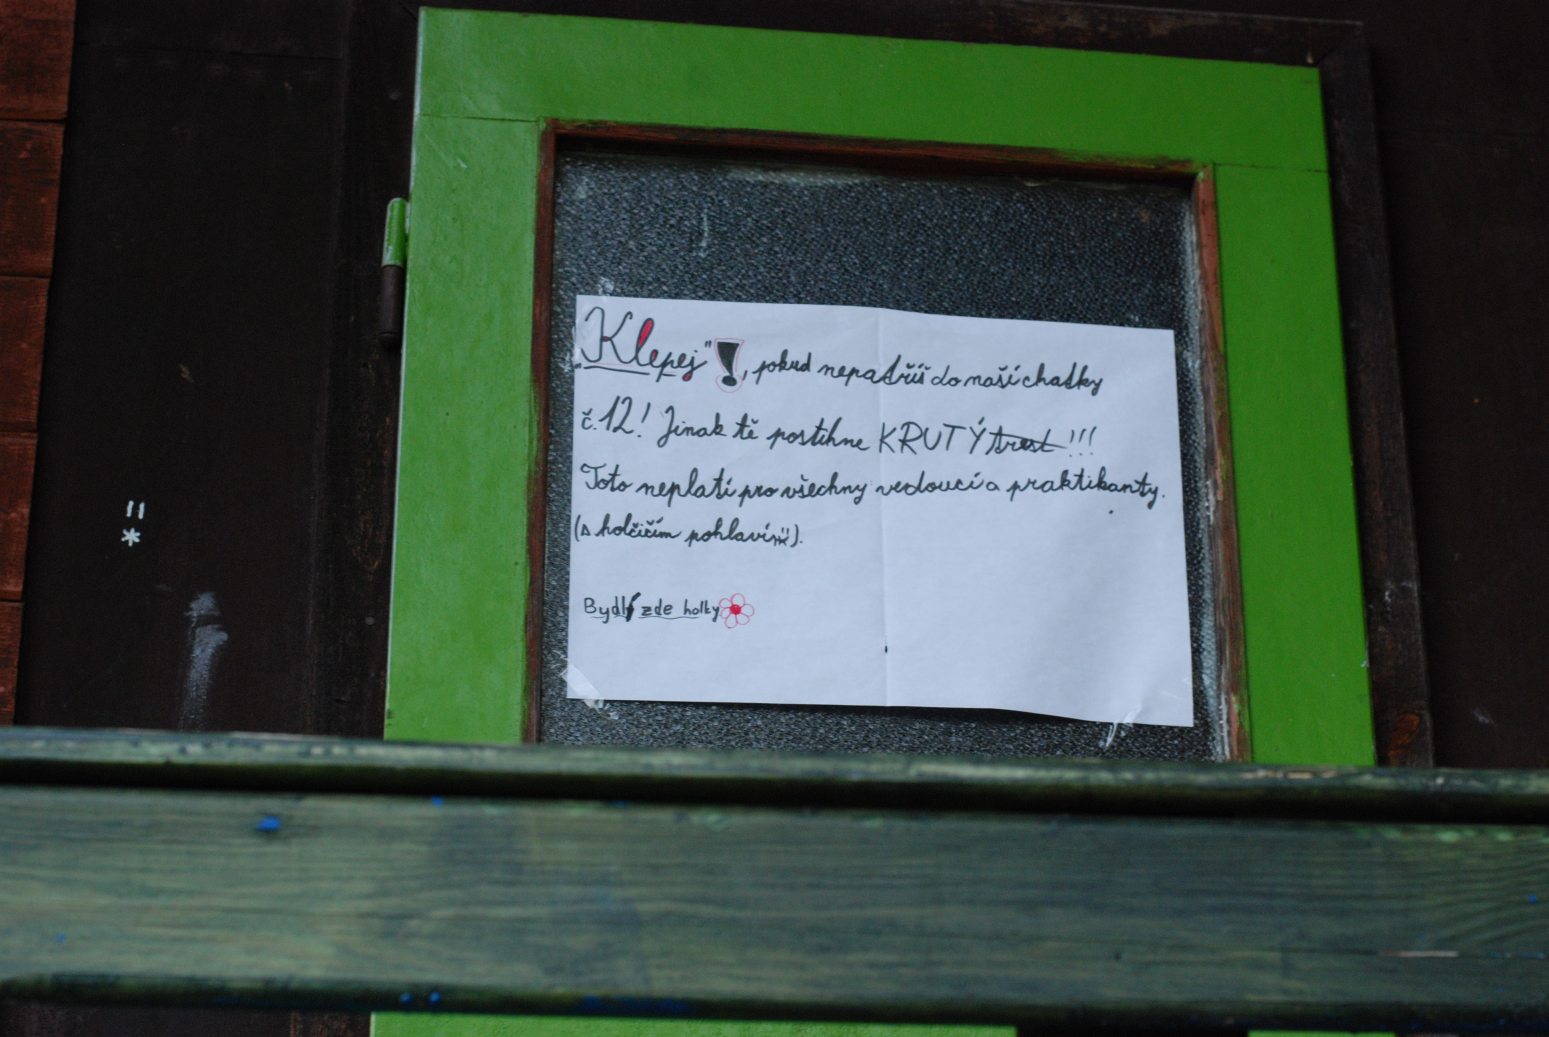 „Klepej“!, pokud nepatříš do naší chatky
č. 12! Jinak tě postihne KRUTÝ trest!!!
Toto neplatí pro všechny vedoucí a praktikanty.
(s holčičím pohlavím).
Bydlí zde holky